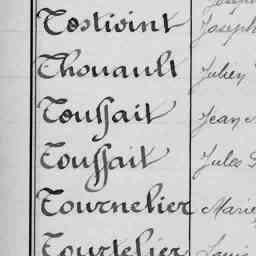 Tostivint Joseph
Thouault Julien
Toussait Jean
Toussait Jules
Tournelier Marie
Tourtelier Louis